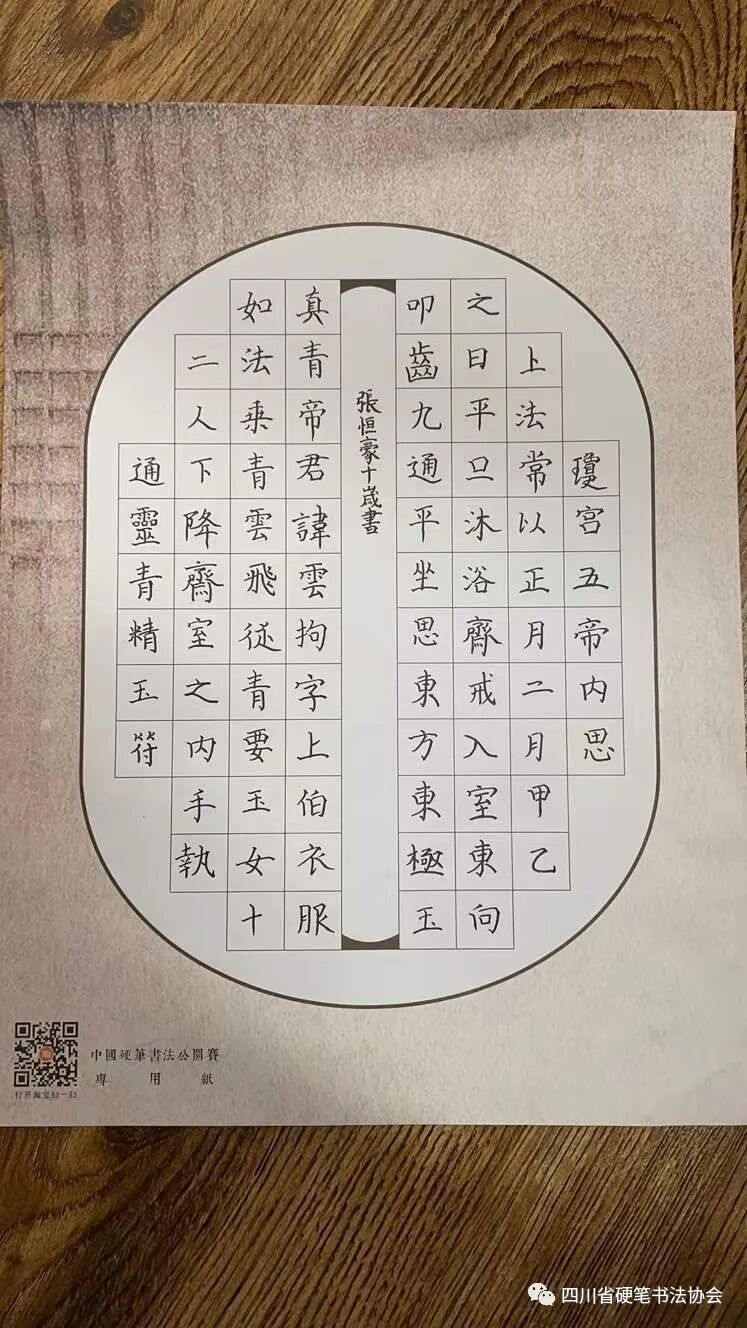 瓊宮五帝內思
上法常以正月二月甲乙
之日平旦沐浴齋戒入室東向
叩齒九通平坐思東方東極玉
真青帝君諱雲拘字上伯衣服
如法乗青雲飛從青要玉女十
二人下降齋室之內手執
通靈青精玉符
張恒豪十歲書
中國硬筆書法公開賽
專用紙
打开淘宝扫一扫
四川省硬笔书法协会